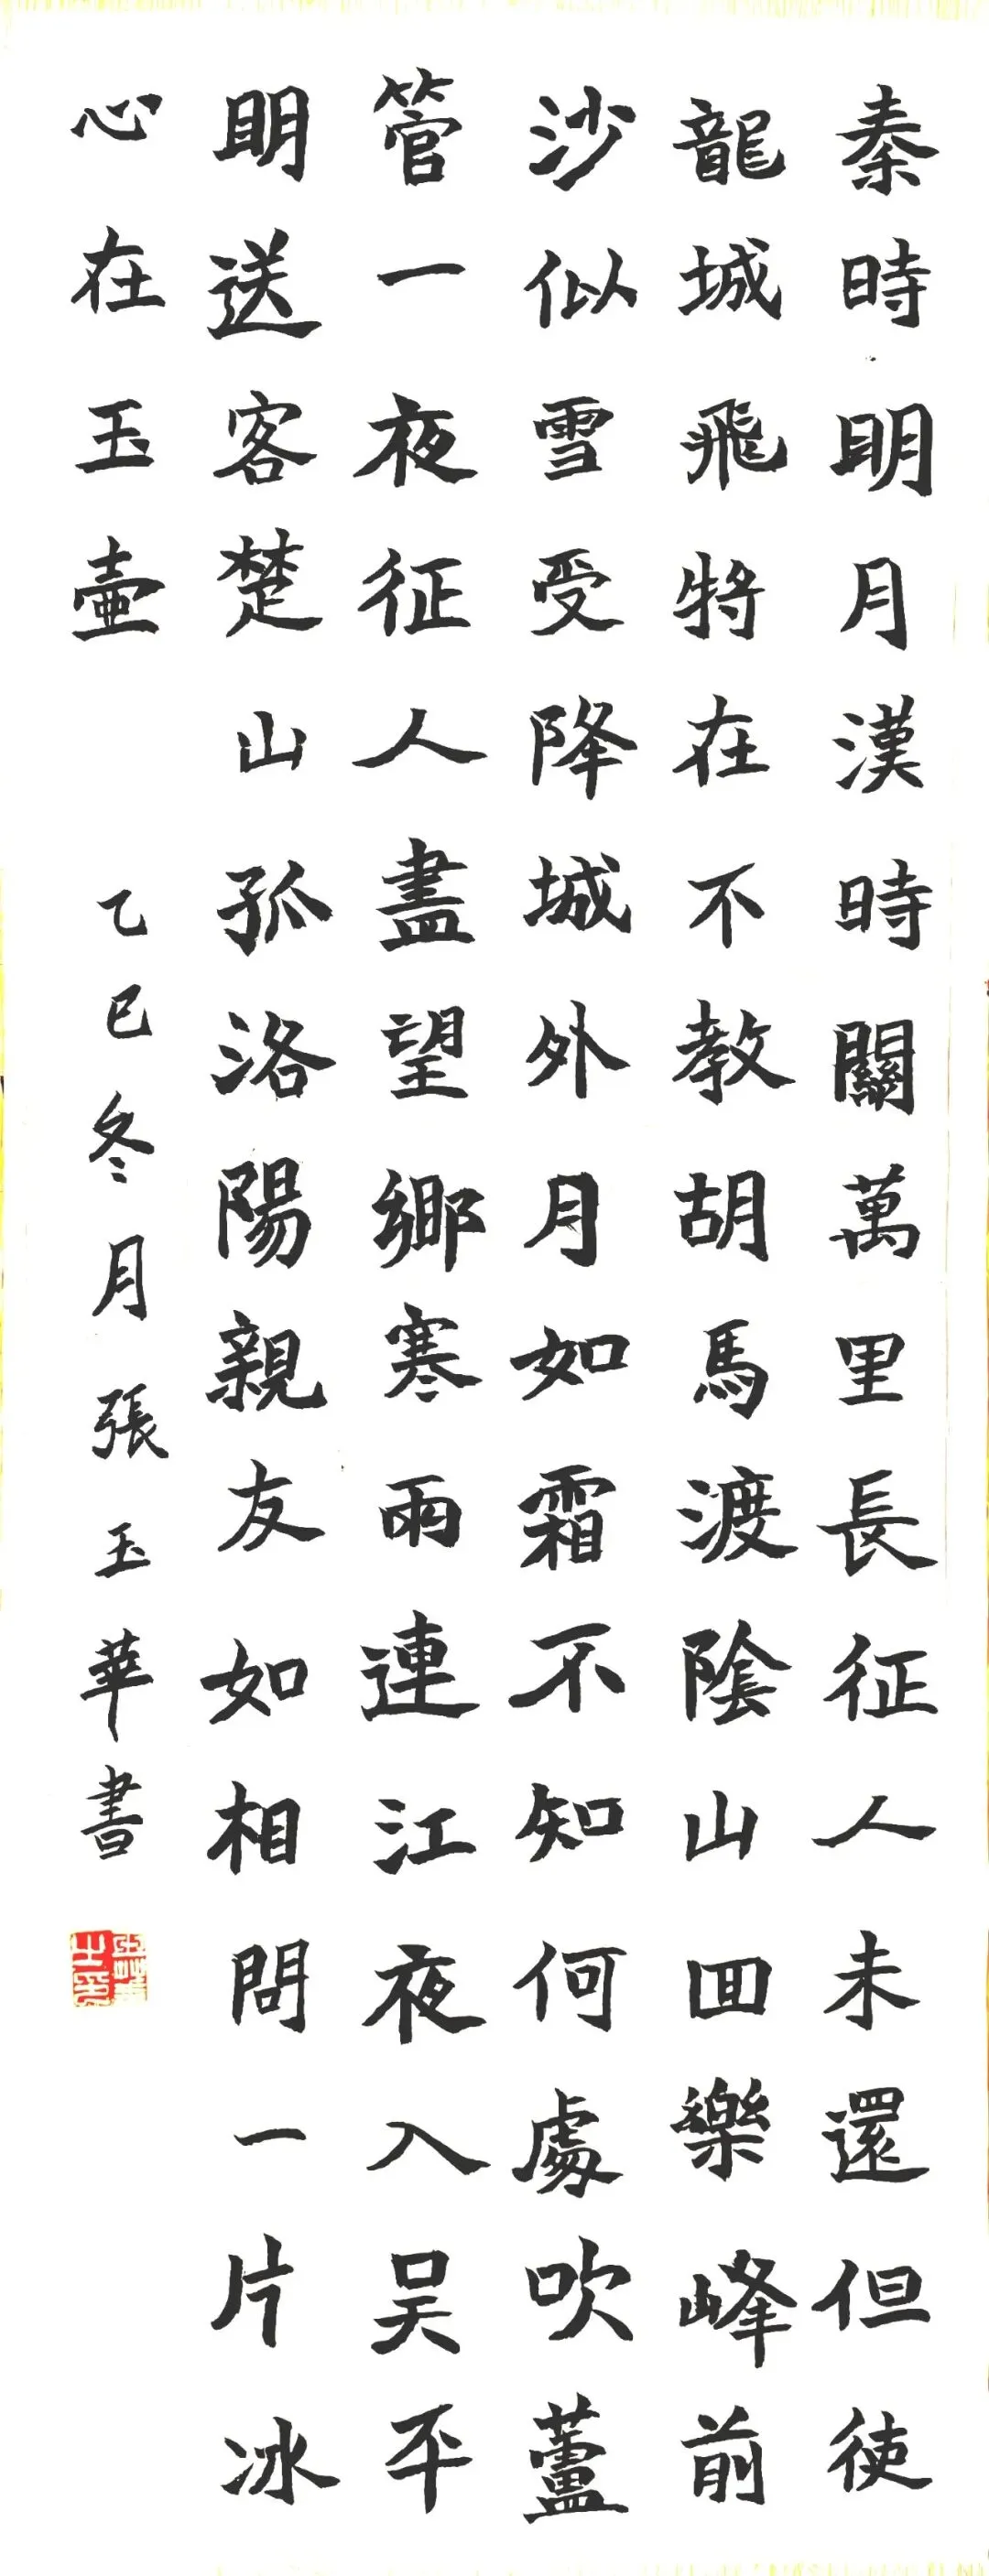 秦時明月漢時關萬里長征人未還但使
龍城飛將在不教胡馬渡陰山回樂峰前
沙似雪受降城外月如霜不知何處吹蘆
管一夜征人盡望鄉寒雨連江夜入吳平
明送客楚山孤洛陽親友如相問一片冰
心在玉壺
乙巳冬月張玉華書